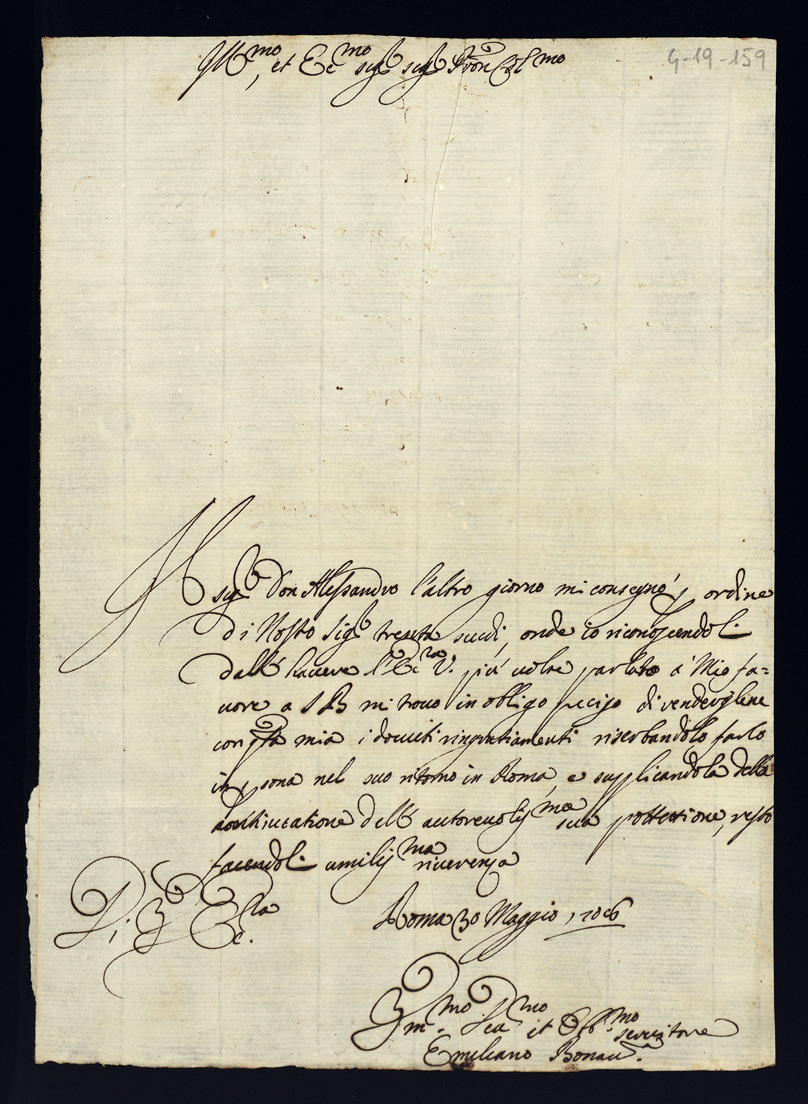 Ill.mo, et Ecc.mo Sig.r Sig.r Pron Col.mo
G-19-159
Il Sig.r Don Alessandro l'altro giorno mi consegnò p ordine
di Nosto Sig.re trenta scudi, onde io riconoscendoli
dall' havere l' Ecc.za V. più volte parlato à Mio fa=
uore a S B mi trouo in obligo preciso di rendergliene
con q.ta mia i douuti ringratiamenti riserbandolo farlo
in p sona nel suo ritorno in Roma, e supplicandola della
dell' autoreuoliss.ma sua protettione, resto
facendoli umiliss.ma riuerenza
Di V. Ecc.za
Roma 30 Maggio 1706
Vm.mo Deu.mo et Obb.mo seruitore
Emiliano Bonau.a